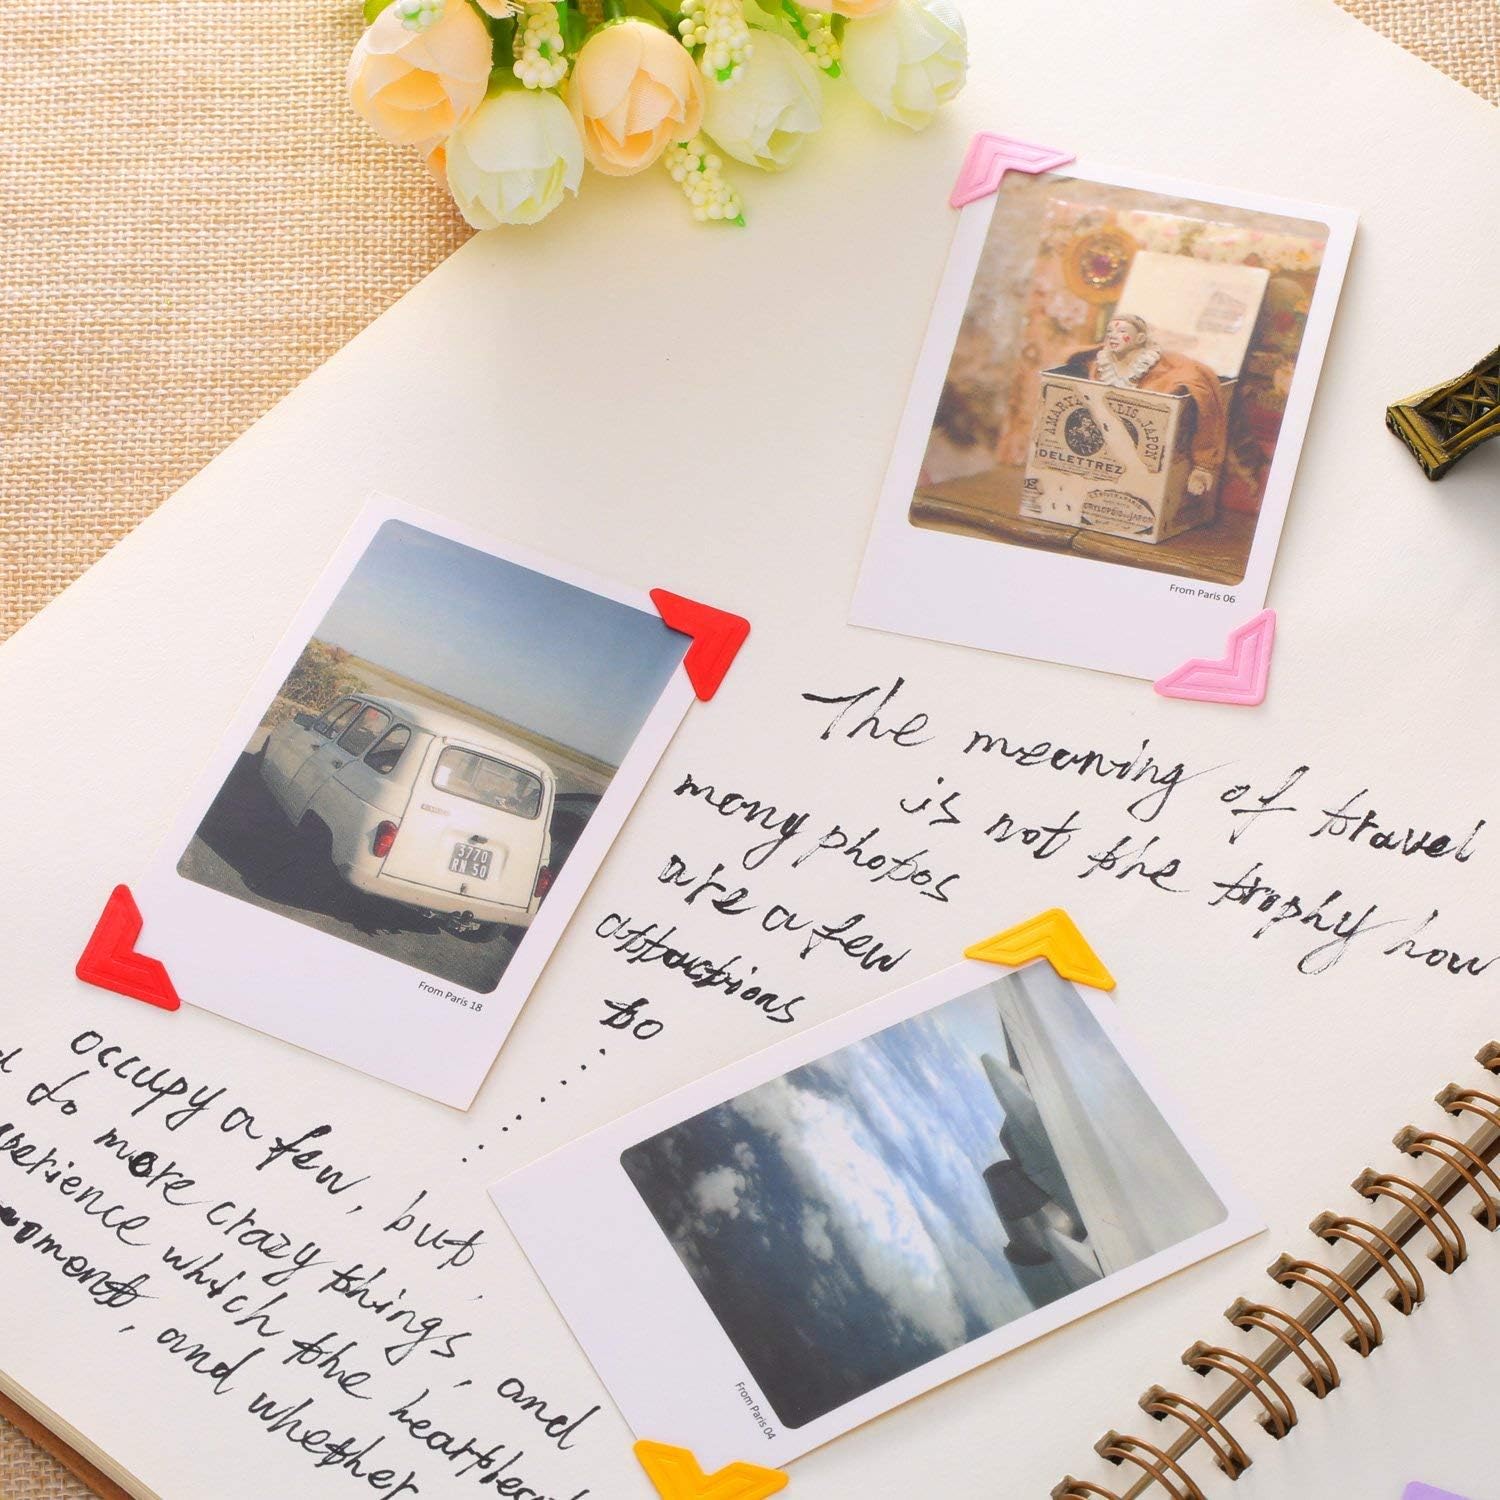 LAMARYLLIS DU JAPON
DELETTREZ
From Paris 06
3770
RN 50
From Paris 18
The meaning of travel
is not the trophy how
many photos
are a few
attractions
to
......
occupy a few, but
do more crazy things, and
which the
moment, and whether
From Paris 04